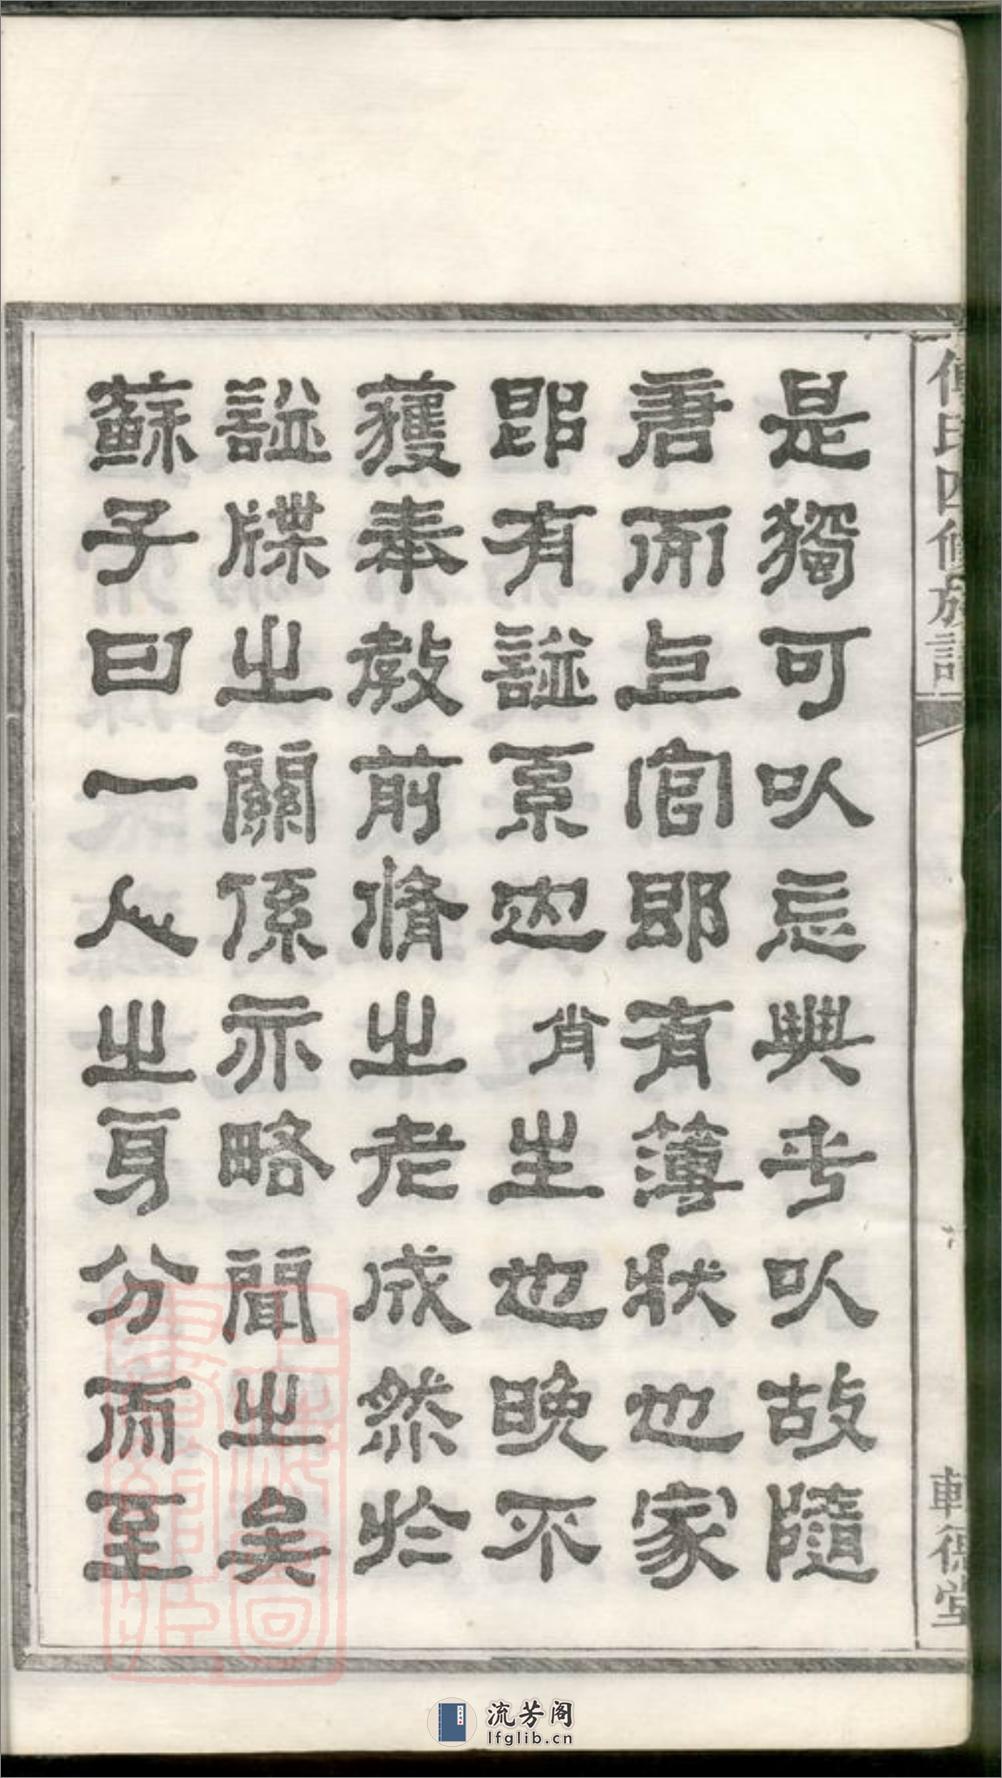 氏四修族譜
德堂
是獨可以忘與乎以故隨
唐而上官即有簿狀也家
即有譜系也肖生也晚不
獲奉教前脩之老成然於
譜牒之關係亦略聞之矣
蘇子曰一人之身分而至
流芳阁
lfglib.cn